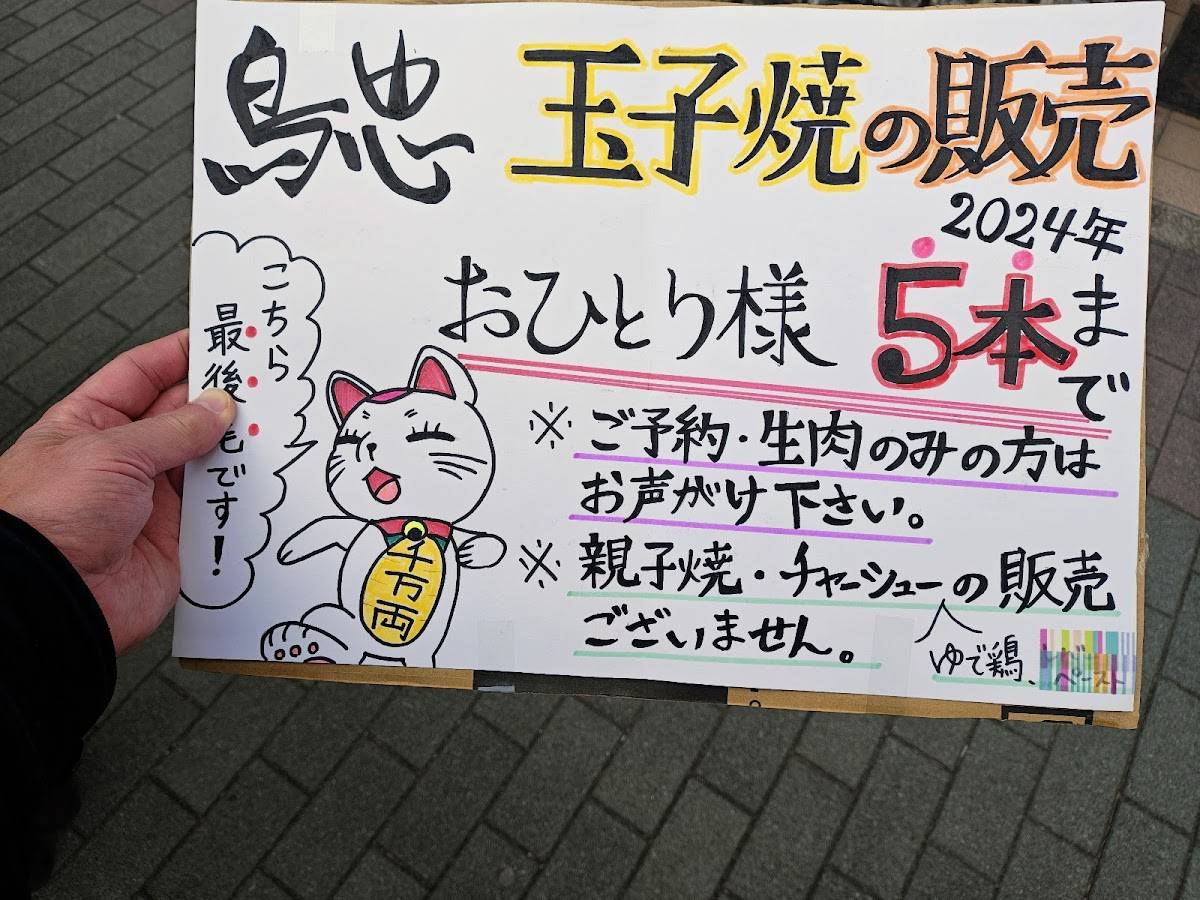 鳥忠
玉子焼の販売
2024年
おひとり様 5本まで
※ご予約・生肉のみの方は
お声がけ下さい。
※親子焼・チャーシューの販売
ございません。
ゆで鶏、
ペースト
こちら
最後尾です!
千万両